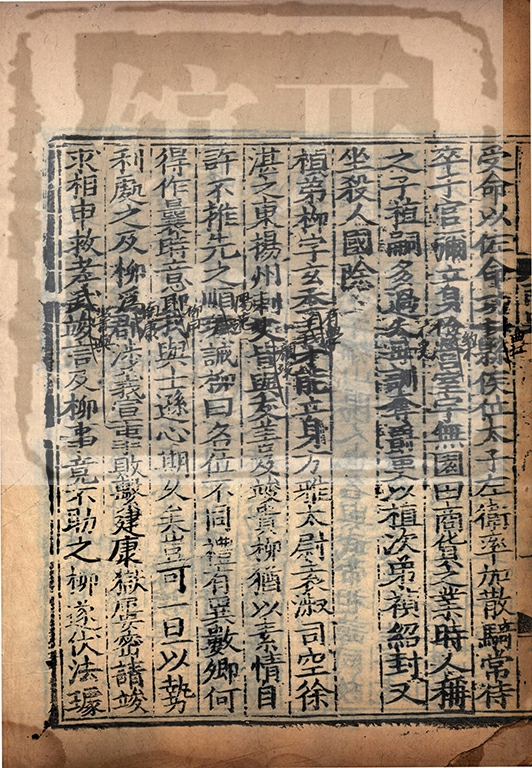 受命以佐命功封曲江縣侯位太子左衛率加散騎常侍
卒于官彌立身儉約不營室宇無園田商貨之業時人稱
之子植嗣多過失不受母訓奪爵更以植次弟楨紹封又
坐殺人國除
楨弟柳字玄季有學義才能立身方雅太尉袁淑司空徐
湛之東楊州刺史顏竣皆與友善及竣貴柳猶以素情自
許不推先之順陽范璩誡柳曰名位不同禮有異數卿何
得作曩時意耶柳曰我與士遜心期久矣豈可一旦以勢
利處之及柳為南康郡涉義宣事敗繫建康獄屢密請竣
求相申救孝武嘗與竣言及柳事竟不助之柳遂伏法璩